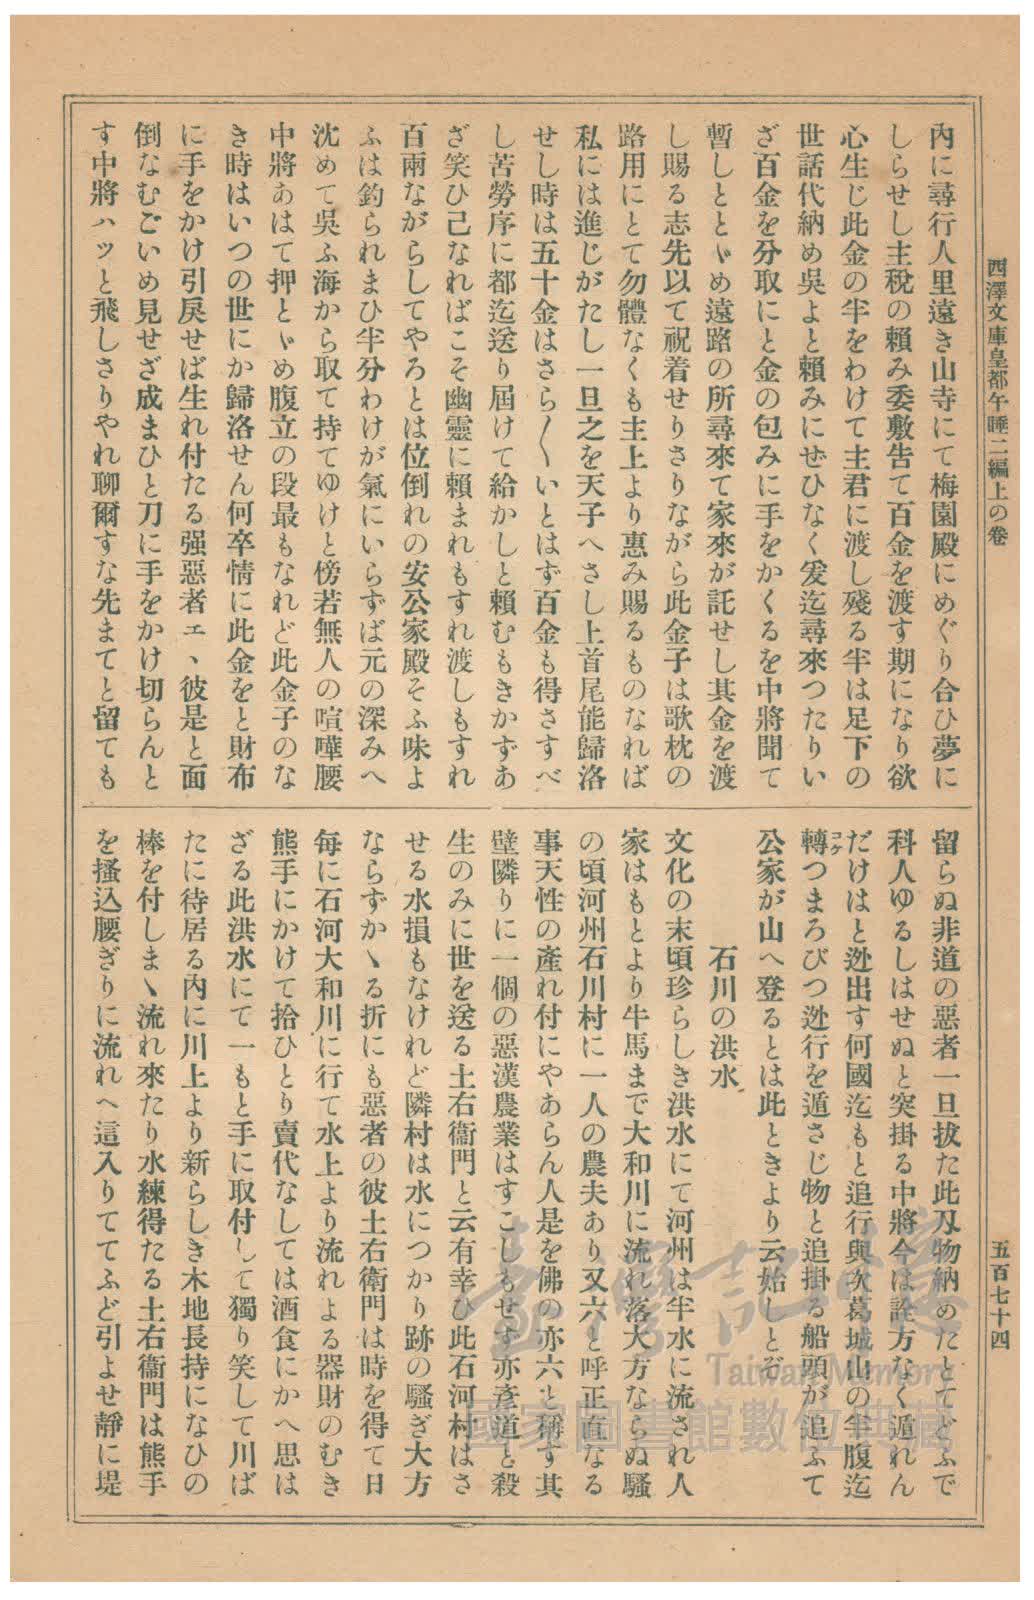 西澤文庫皇都午睡二編上の卷
五百七十四
內に尋行人里遠き山寺にて梅園殿にめぐり合ひ夢に
しらせし主稅の賴み委敷告て百金を渡す期になり欲
心生じ此金の半をわけて主君に渡し殘る半は足下の
世話代納め吳よと賴みにぜひなく爰迄尋來つたりい
ざ百金を分取にと金の包みに手をかくるを中將聞て
暫しとゞめ遠路の所尋來て家來が託せし其金を渡
し賜る志先以て祝着せりさりながら此金子は歌枕の
路用にとて勿體なくも主上より惠み賜るものなれば
私には進じがたし一旦之を天子へさし上首尾能歸洛
せし時は五十金はさら〱いとはず百金も得さすべ
し苦勞序に都迄送り屆けて給かしと賴むもきかずあ
ざ笑ひ己なればこそ幽靈に賴まれもすれ渡しもすれ
百兩ながらしてやろとは位倒れの安公家殿そふ味よ
ふは釣られまひ半分わけが氣にいらずば元の深みへ
沈めて吳ふ海から取て持てゆけと傍若無人の喧嘩腰
中將あはて押とゞめ腹立の段最もなれど此金子のな
き時はいつの世にか歸洛せん何卒情に此金をと財布
に手をかけ引戾せば生れ付たる强惡者ェヽ彼是と面
倒なむごいめ見せざ成まひと刀に手をかけ切らんと
す中將ハッと飛しさりやれ聊爾すな先まてと留ても
留らぬ非道の惡者一旦拔た此刄物納めたとてどふで
科人ゆるしはせぬと突掛る中將今は詮方なく遁れん
だけはと迯出す何國迄もと追行與次葛城山の半腹迄
轉つまろびつ迯行を遁さじ物と追掛る船頭が追ふて
コケ
公家が山へ登るとは此ときより云始しとぞ
石川の洪水
文化の末頃珍らしき洪水にて河州は半水に流され人
家はもとより牛馬まで大和川に流れ落大方ならぬ騷
の頃河州石川村に一人の農夫あり又六と呼正直なる
事天性の產れ付にやあらん人是を佛の亦六と稱す其
壁隣りに一個の惡漢農業はすこしもせず亦彥道と殺
生のみに世を送る土右衞門と云有幸ひ此石河村はさ
せる水損もなけれど隣村は水につかり跡の騷ぎ大方
ならずかゝる折にも惡者の彼土右衛門は時を得て日
每に石河大和川に行て水上より流れよる器財のむき
熊手にかけて拾ひとり賣代なしては酒食にかへ思は
ざる此洪水にて一もと手に取付しと獨り笑して川ば
たに待居る內に川上より新らしき木地長持になひの
棒を付しまゝ流れ來たり水練得たる土右衞門は熊手
を搔込腰ぎりに流れへ這入りててふど引よせ靜に堤
臺灣記憶
Taiwan Memory
國家圖書館數位典藏